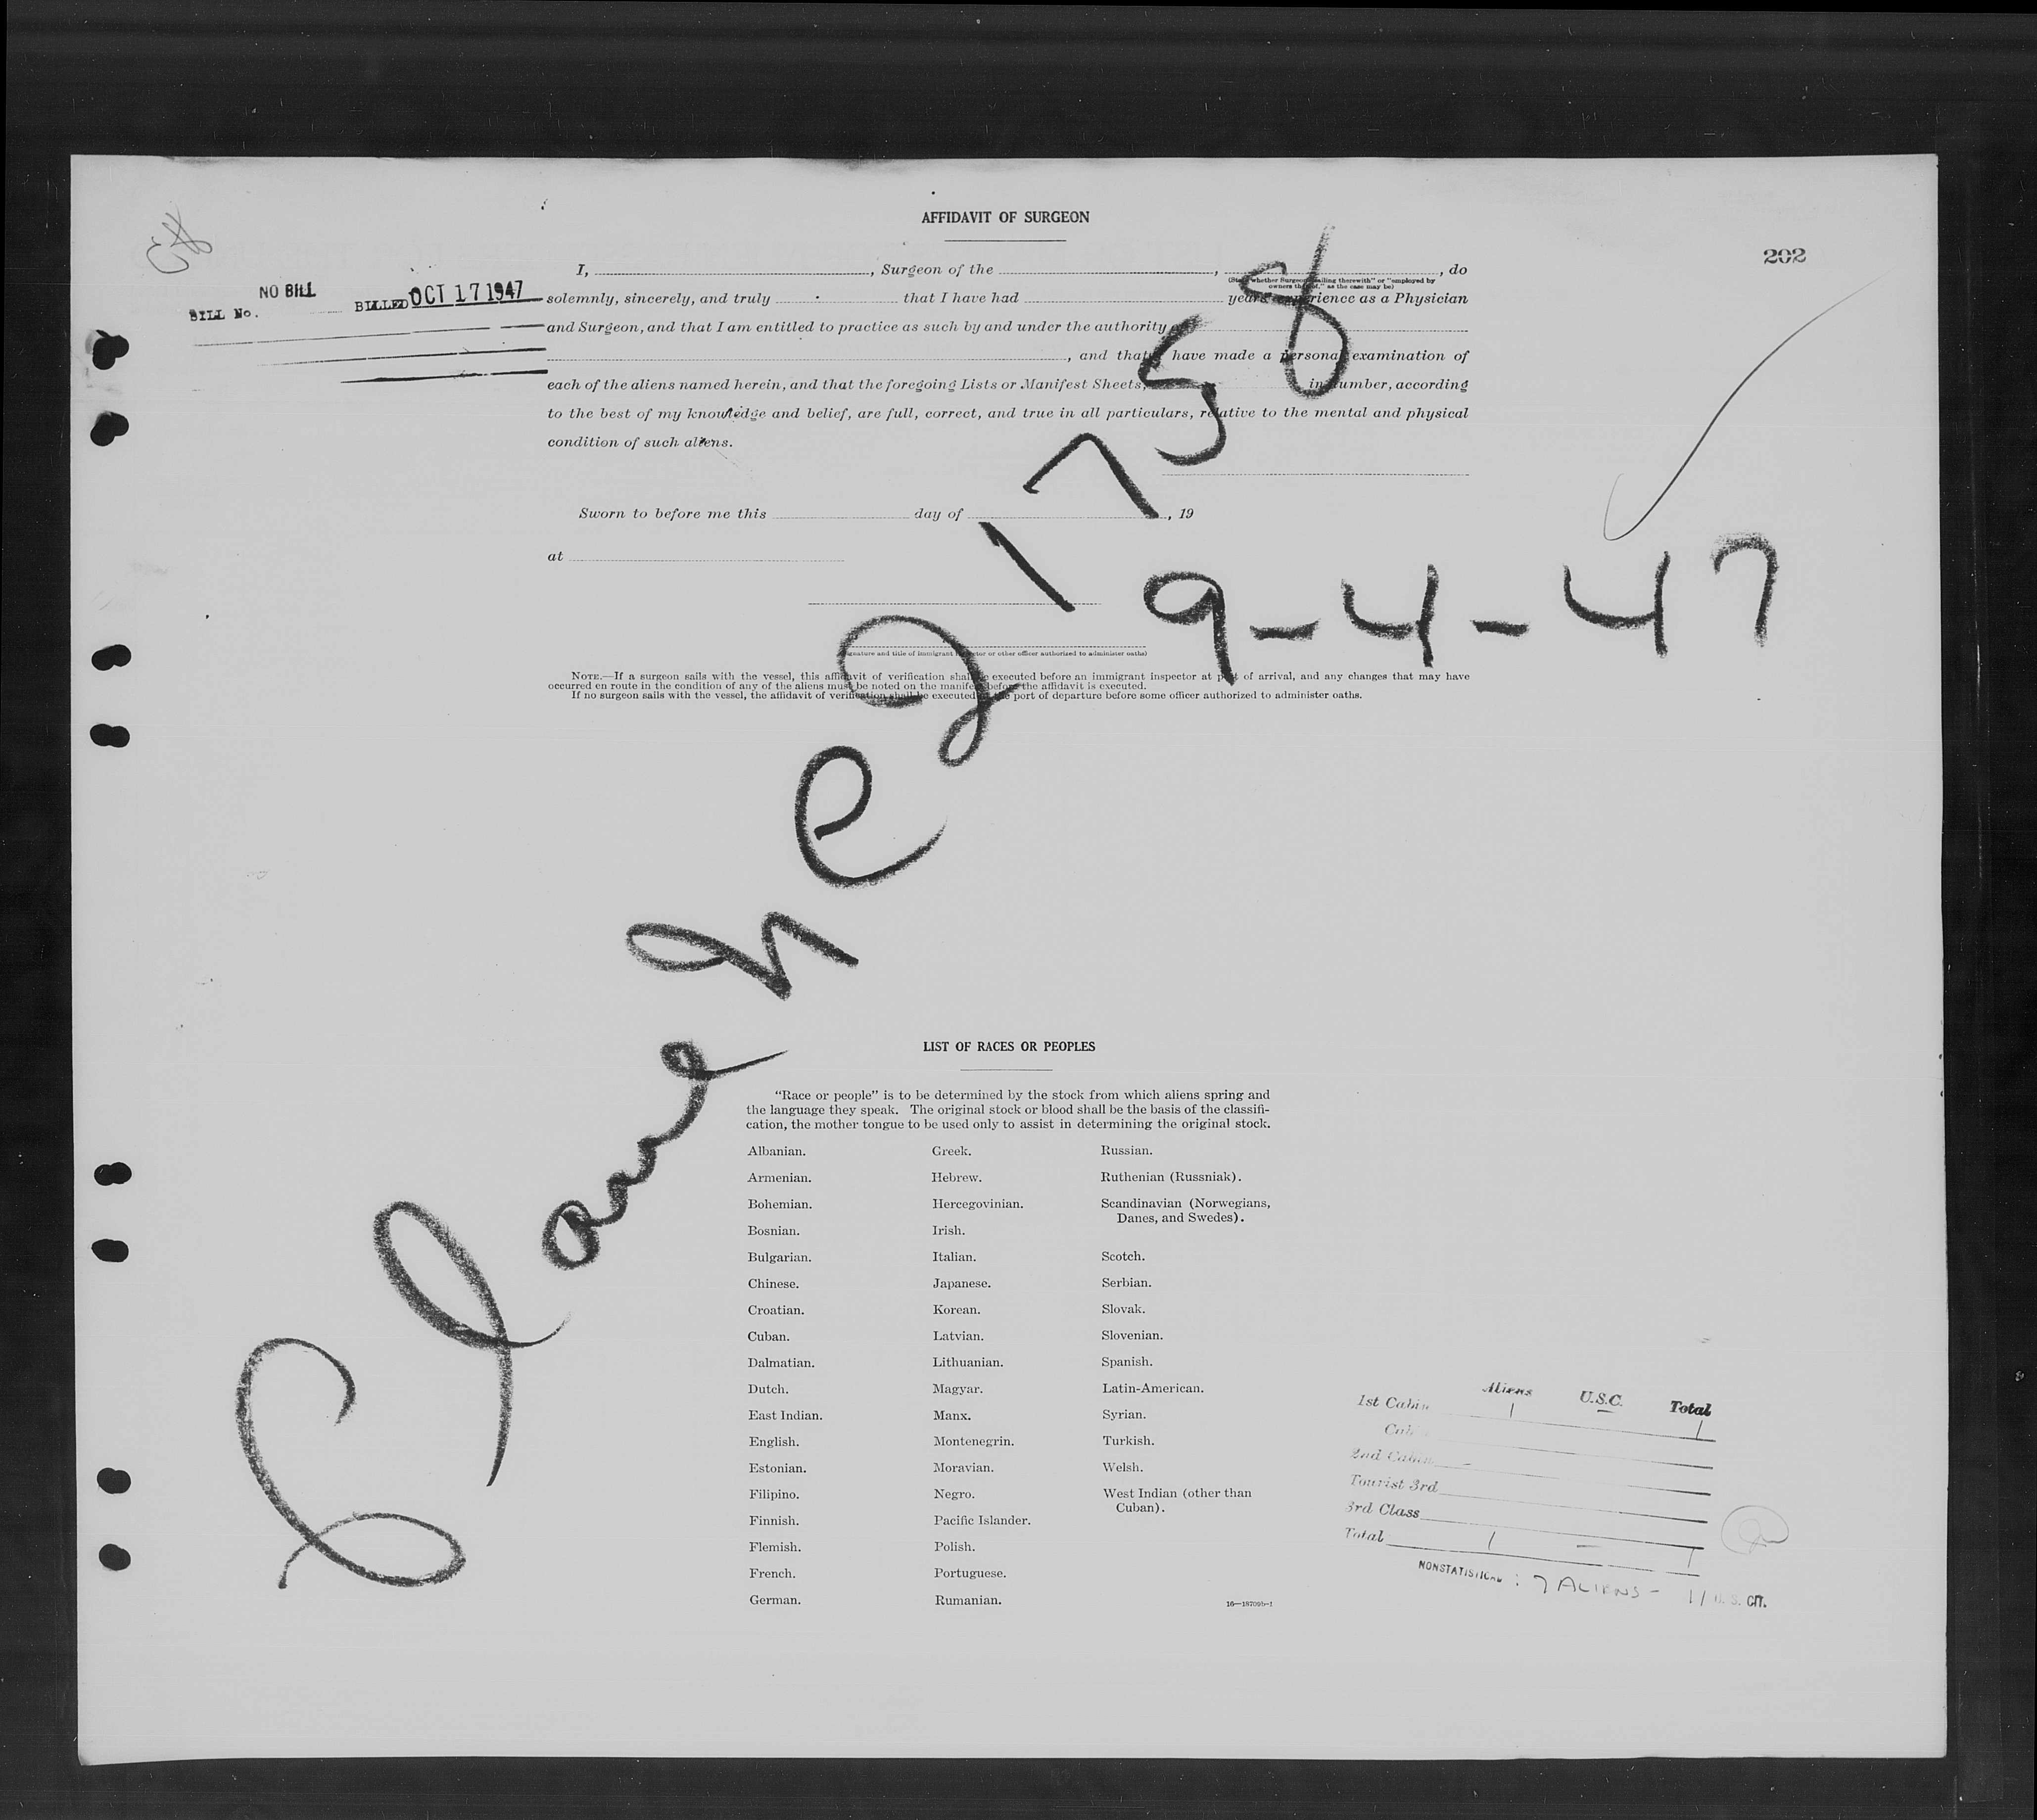 AFFIDAVIT OF SURGEON
202
NO BILL
BILL No. BILLED OCT 17 1947
I, , Surgeon of the , , do
(State whether Surgeon sailing therewith" or "employed by
owners thereof," as the case may be)
solemnly, sincerely, and truly that I have had years experience as a Physician
and Surgeon, and that I am entitled to practice as such by and under the authority
, and that I have made a personal examination of
each of the aliens named herein, and that the foregoing Lists or Manifest Sheets, in number, according
to the best of my knowledge and belief, are full, correct, and true in all particulars, relative to the mental and physical
condition of such aliens.
Sworn to before me this day of , 19
at
(Signature and title of immigrant inspector or other officer authorized to administer oaths)
NOTE.—If a surgeon sails with the vessel, this affidavit of verification shall be executed before an immigrant inspector at port of arrival, and any changes that may have
occurred en route in the condition of any of the aliens must be noted on the manifest before the affidavit is executed.
If no surgeon sails with the vessel, the affidavit of verification shall be executed at the port of departure before some officer authorized to administer oaths.
1758
9-4-47
LIST OF RACES OR PEOPLES
"Race or people" is to be determined by the stock from which aliens spring and
the language they speak. The original stock or blood shall be the basis of the classifi-
cation, the mother tongue to be used only to assist in determining the original stock.
Albanian.
Armenian.
Bohemian.
Bosnian.
Bulgarian.
Chinese.
Croatian.
Cuban.
Dalmatian.
Dutch.
East Indian.
English.
Estonian.
Filipino.
Finnish.
Flemish.
French.
German.
Greek.
Hebrew.
Hercegovinian.
Irish.
Italian.
Japanese.
Korean.
Latvian.
Lithuanian.
Magyar.
Manx.
Montenegrin.
Moravian.
Negro.
Pacific Islander.
Polish.
Portuguese.
Rumanian.
Russian.
Ruthenian (Russniak).
Scandinavian (Norwegians,
Danes, and Swedes).
Scotch.
Serbian.
Slovak.
Slovenian.
Spanish.
Latin-American.
Syrian.
Turkish.
Welsh.
West Indian (other than
Cuban).
16—18709b-1
Aliens U.S.C. Total
1st Cabin 1 1
Cabin
2nd Cabin —
Tourist 3rd
3rd Class
Total 1 — 1
NONSTATISTICAL: 7 ALIENS - 11 U.S. CIT.